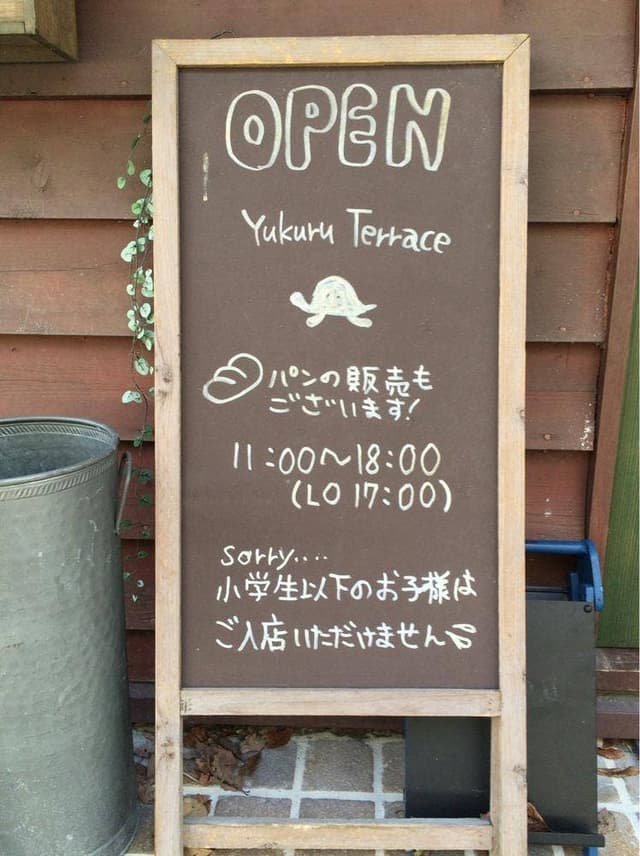 OPEN
Yukuru Terrace
パンの販売も
ございます!
11:00〜18:00
(LO 17:00)
sorry....
小学生以下のお子様は
ご入店いただけません